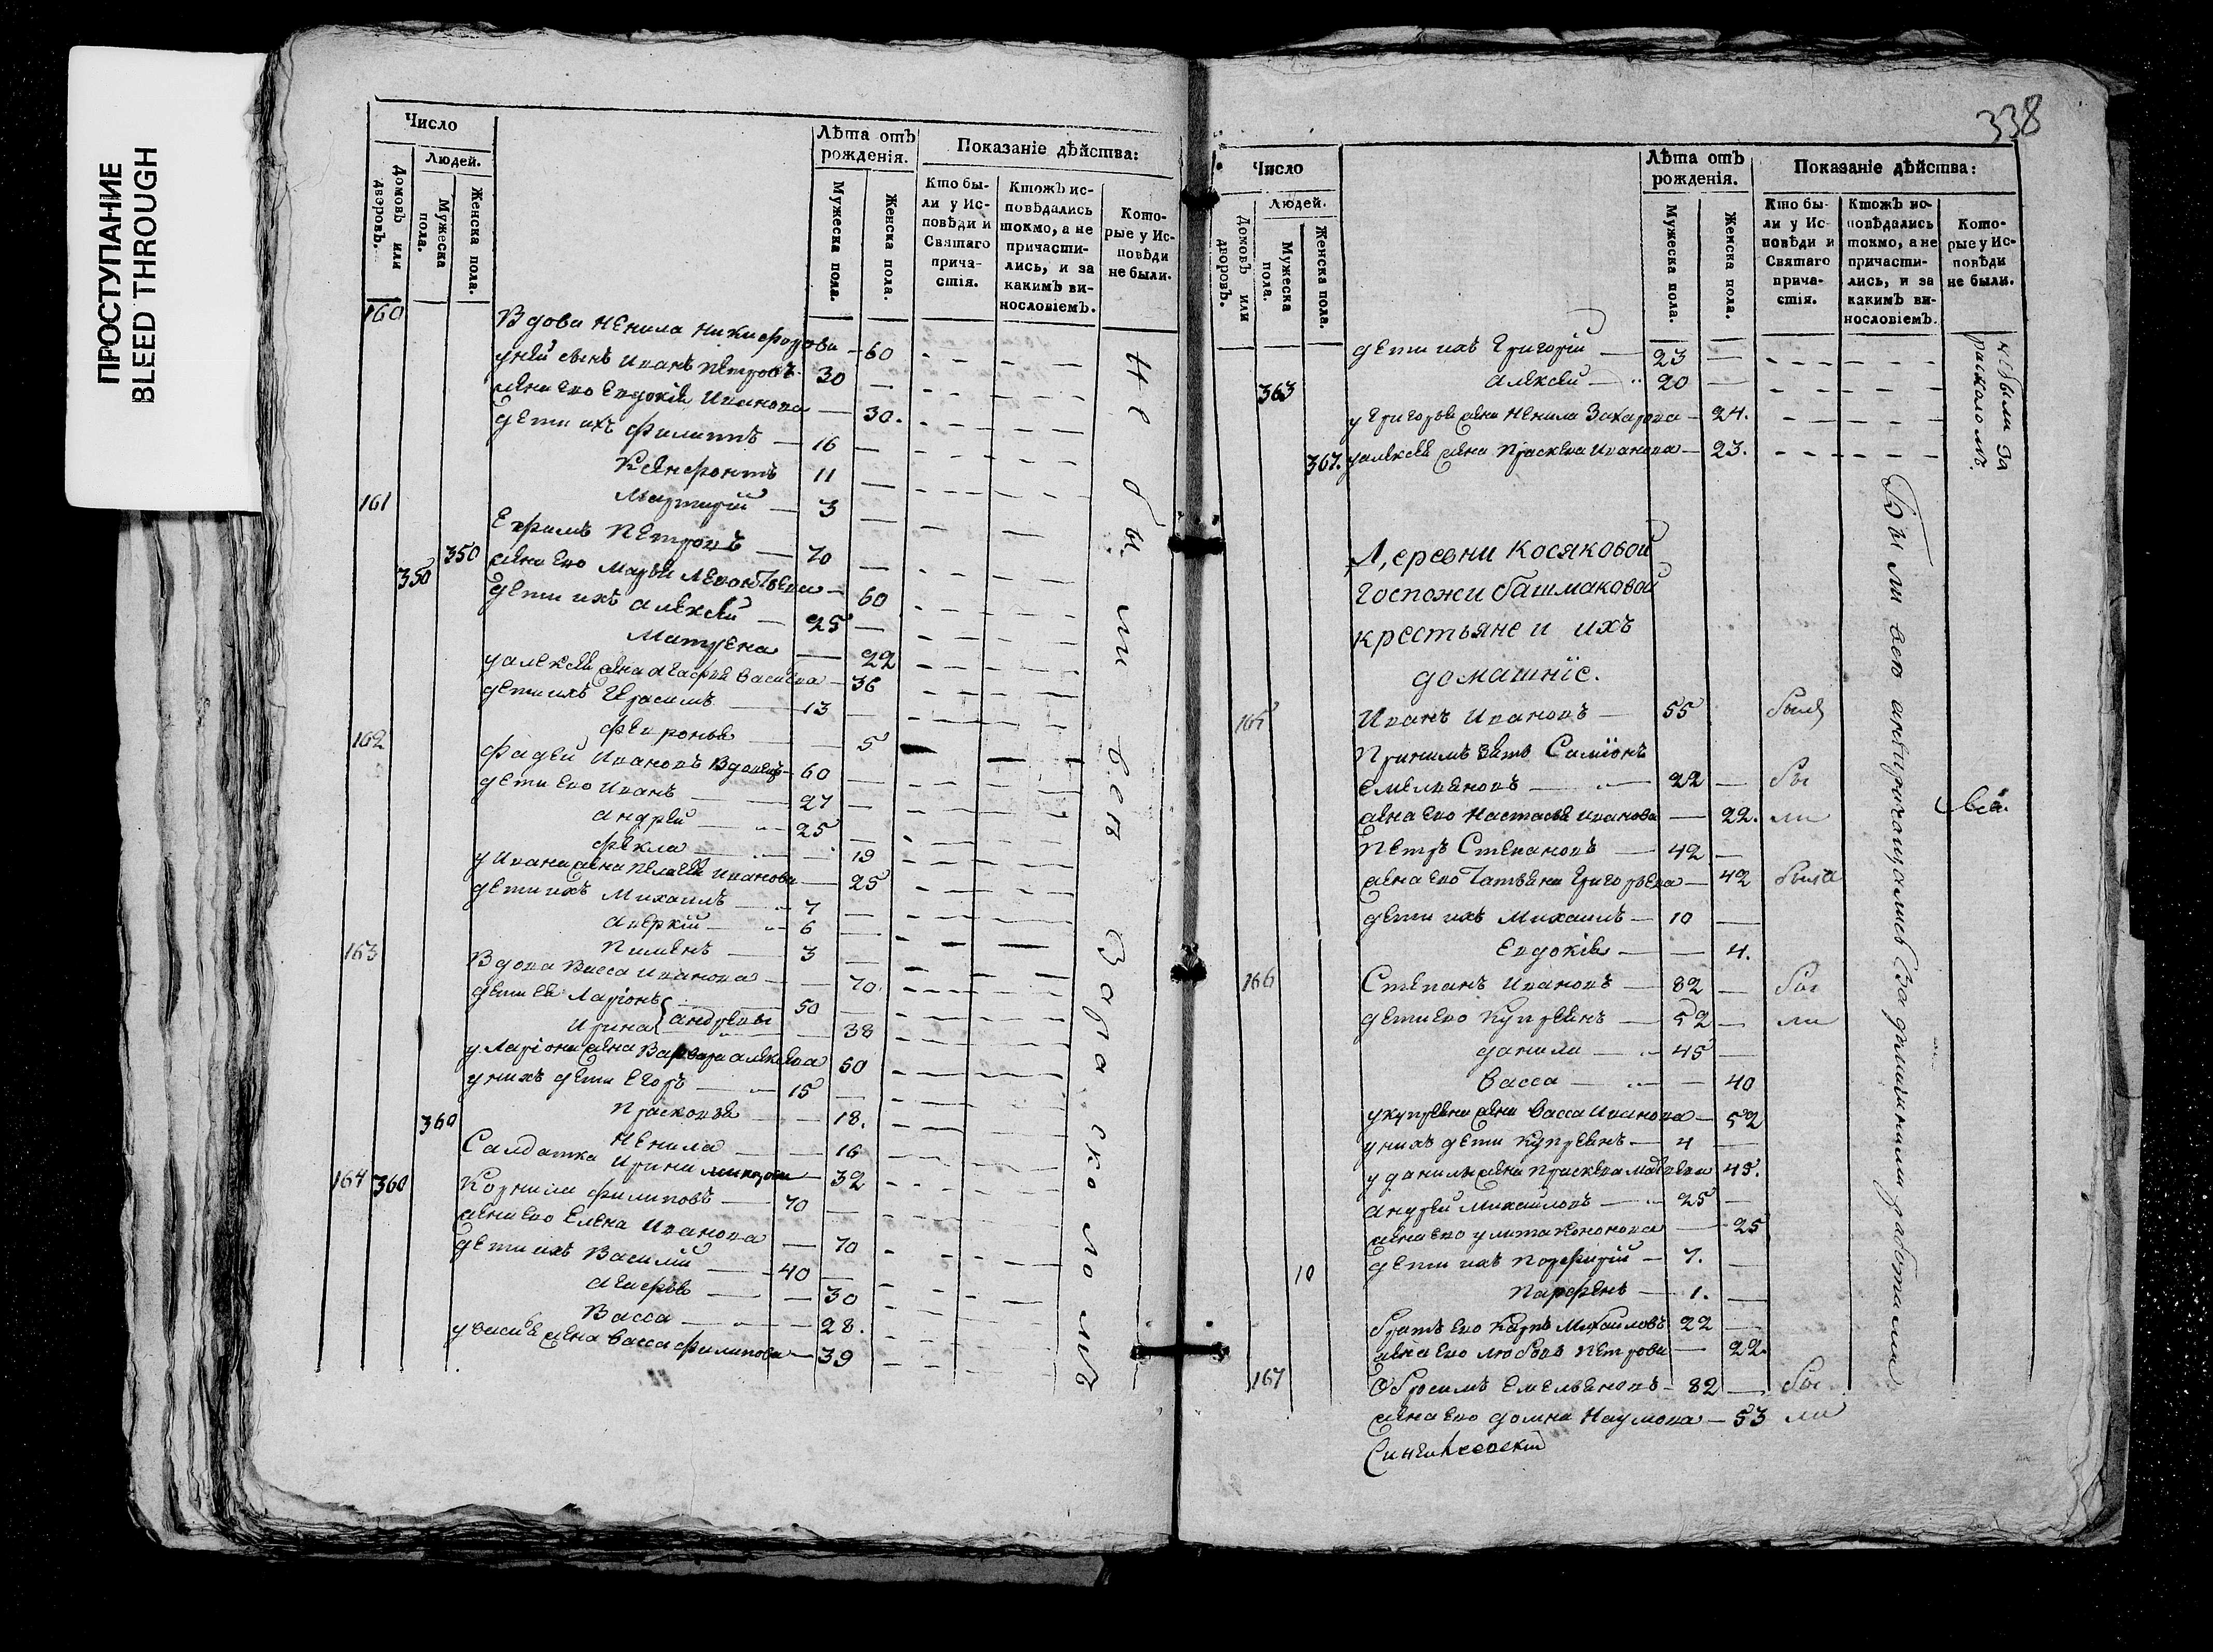 ПРОСТУПАНИЕ
BLEED THROUGH
Число
Людей.
Домовъ или дворовъ.
Мужеска пола.
Женска пола.
Лѣта отъ рожденія.
Мужеска пола.
Женска пола.
Показаніе дѣйства:
Кто были у Исповѣди и Святаго причастія.
Ктожъ исповѣдались токмо, а не причастились, и за какимъ винословіемъ.
Которые у Исповѣди не были.
160 Вдова Ненила Никифорова — 60
у ней сынъ Иванъ Петровъ 30
жена ево Евдокія Иванова — 30.
дети ихъ Филиппъ — 16
Ксенофонтъ 11
Мартирій — 3
161 Ефимъ Петровъ — 70
350 жена ево Марья Леонтьева — 60
350 дети ихъ Алексей — 25
Матрена — 22
у Алексея жена Агафия Васильева — 36
дети ихъ Герасимъ — 13
Февронья — 5
162 Фадей Ивановъ вдовецъ — 60
дети ево Иванъ — 27
Андрей — 25
Фекла — 19
у Ивана жена Пелагея Иванова — 25
дети ихъ Михаилъ — 7
Аверкій — 6
Пименъ — 3
163 Вдова Васса Иванова — 70.
дети ея Ларіонъ 50
Ирина Андреевы — 38
у Ларіона жена Варвара Алексеева 50
у нихъ дети Егоръ — 15
Прасковья — 18.
360 Ненила — 16
Салдатка Ирина — 32
164 360 Корнила Филиповъ — 70
жена ево Елена Иванова — 70
дети ихъ Василій — 40
Агафья — 30
Васса — 28.
у Василья жена Васса Филипова — 39
не были все за расколомъ
338
Число
Людей.
Домовъ или дворовъ.
Мужеска пола.
Женска пола.
Лѣта отъ рожденія.
Мужеска пола.
Женска пола.
Показаніе дѣйства:
Кто были у Исповѣди и Святаго причастія.
Ктожъ исповѣдались токмо, а не причастились, и за какимъ винословіемъ.
Которые у Исповѣди не были.
дети ихъ Григорій — 23
363 Алексей — 20
у Григорья жена Ненила Захарова — 24.
367. у Алексея жена Прасковья Иванова — 23.
не были за расколомъ
Деревни Косяковой
Госпожи Башмаковой
крестьяне и ихъ
домашніе.
165 Иванъ Ивановъ — 55 былъ
Принялъ зятя Симіонъ
Емельяновъ — 22 — бы
жена ево Настасья Иванова — 22. ли
Петръ Степановъ — 42
жена ево Татьяна Григорьева — 42 была
дети ихъ Михаилъ — 10
Евдокія — 4.
166 Степанъ Ивановъ — 82 — бы
дети ево Купреянъ — 52 — ли
Данила — 45
Васса — 40
у Купреяна жена Васса Иванова — 52
у нихъ дети Купреянъ — 4
у Данилы жена Прасковья Матвеева 45.
Андрей Михайловъ — 25
жена ево Улита Кононова — 25
10 дети ихъ Порфирій — 7.
Парфенъ — 1.
братъ ево Карпъ Михайловъ 22
жена ево Любовь Петрова — 22.
167 Обросимъ Емельяновъ — 82 — бы
жена ево Домна Наумова — 53 ли
все.